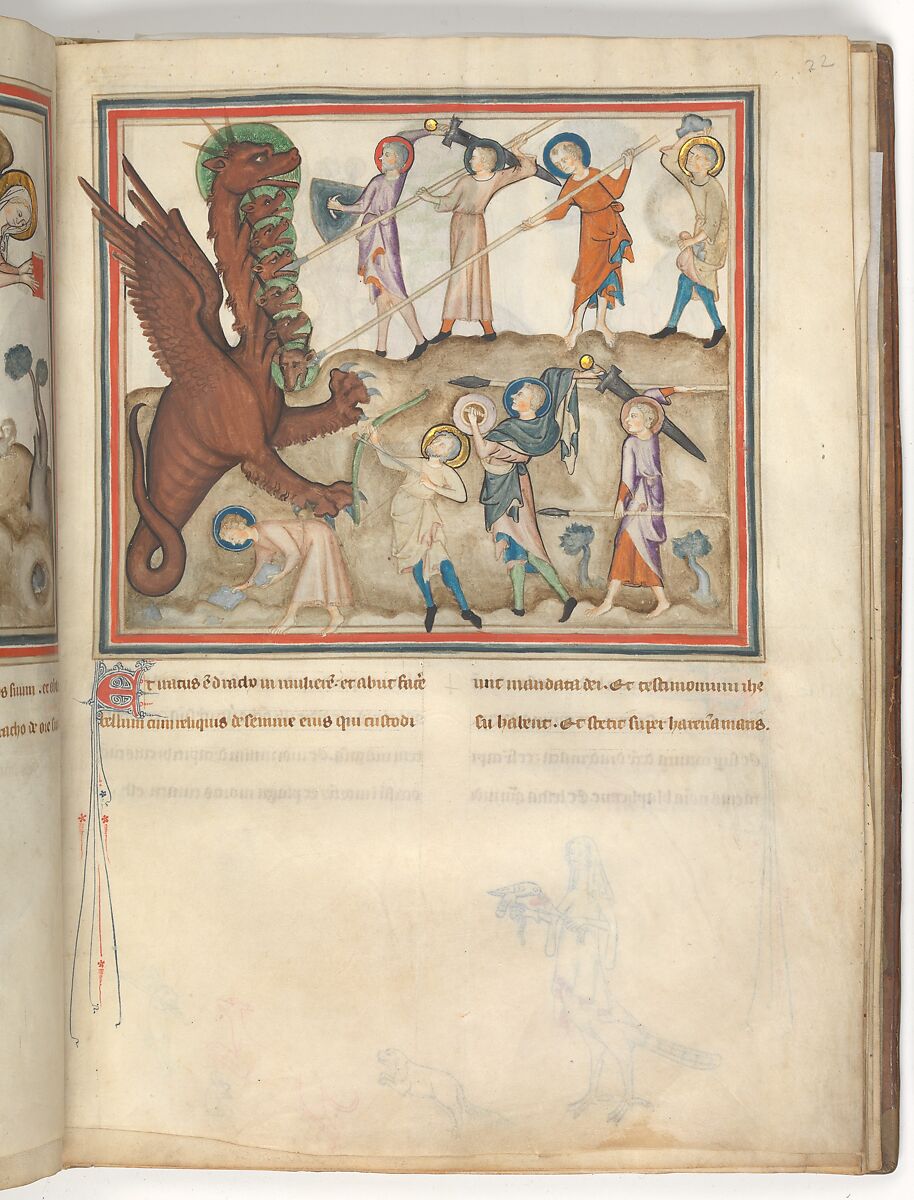 22
Et iratus ē draco in mulierē et abiit facē
p̄ellum cum reliquis de semine eius qui custodi
unt mandata dei. Et testimonium ihe
su habent. Et stetit super harenā maris.